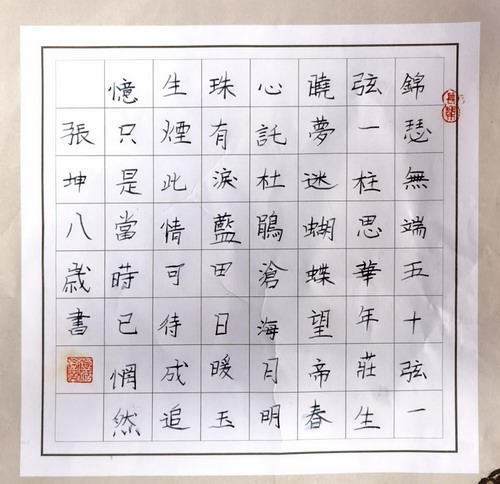 錦瑟無端五十弦一
弦一柱思華年莊生
曉夢迷蝴蝶望帝春
心託杜鵑滄海月明
珠有淚藍田日暖玉
生煙此情可待成追
憶只是當時已惘然
張坤八歲書